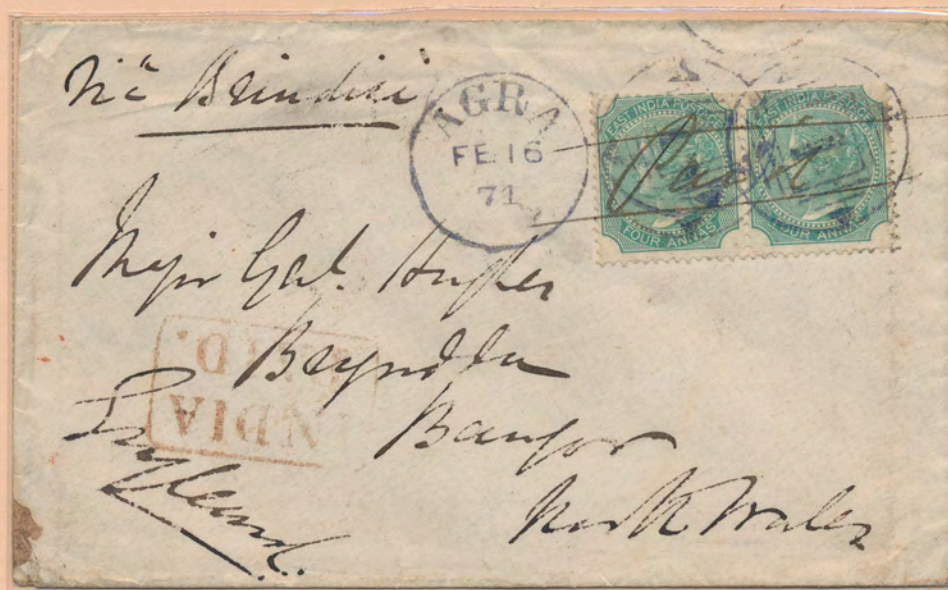 Via Brindisi
AGRA
FE 16
71
EAST INDIA POSTAGE
FOUR ANNAS
EAST INDIA POSTAGE
FOUR ANNAS
Paid
Major Genl. Hughes
Bangor
North Wales
England.
INDIA
PAID.